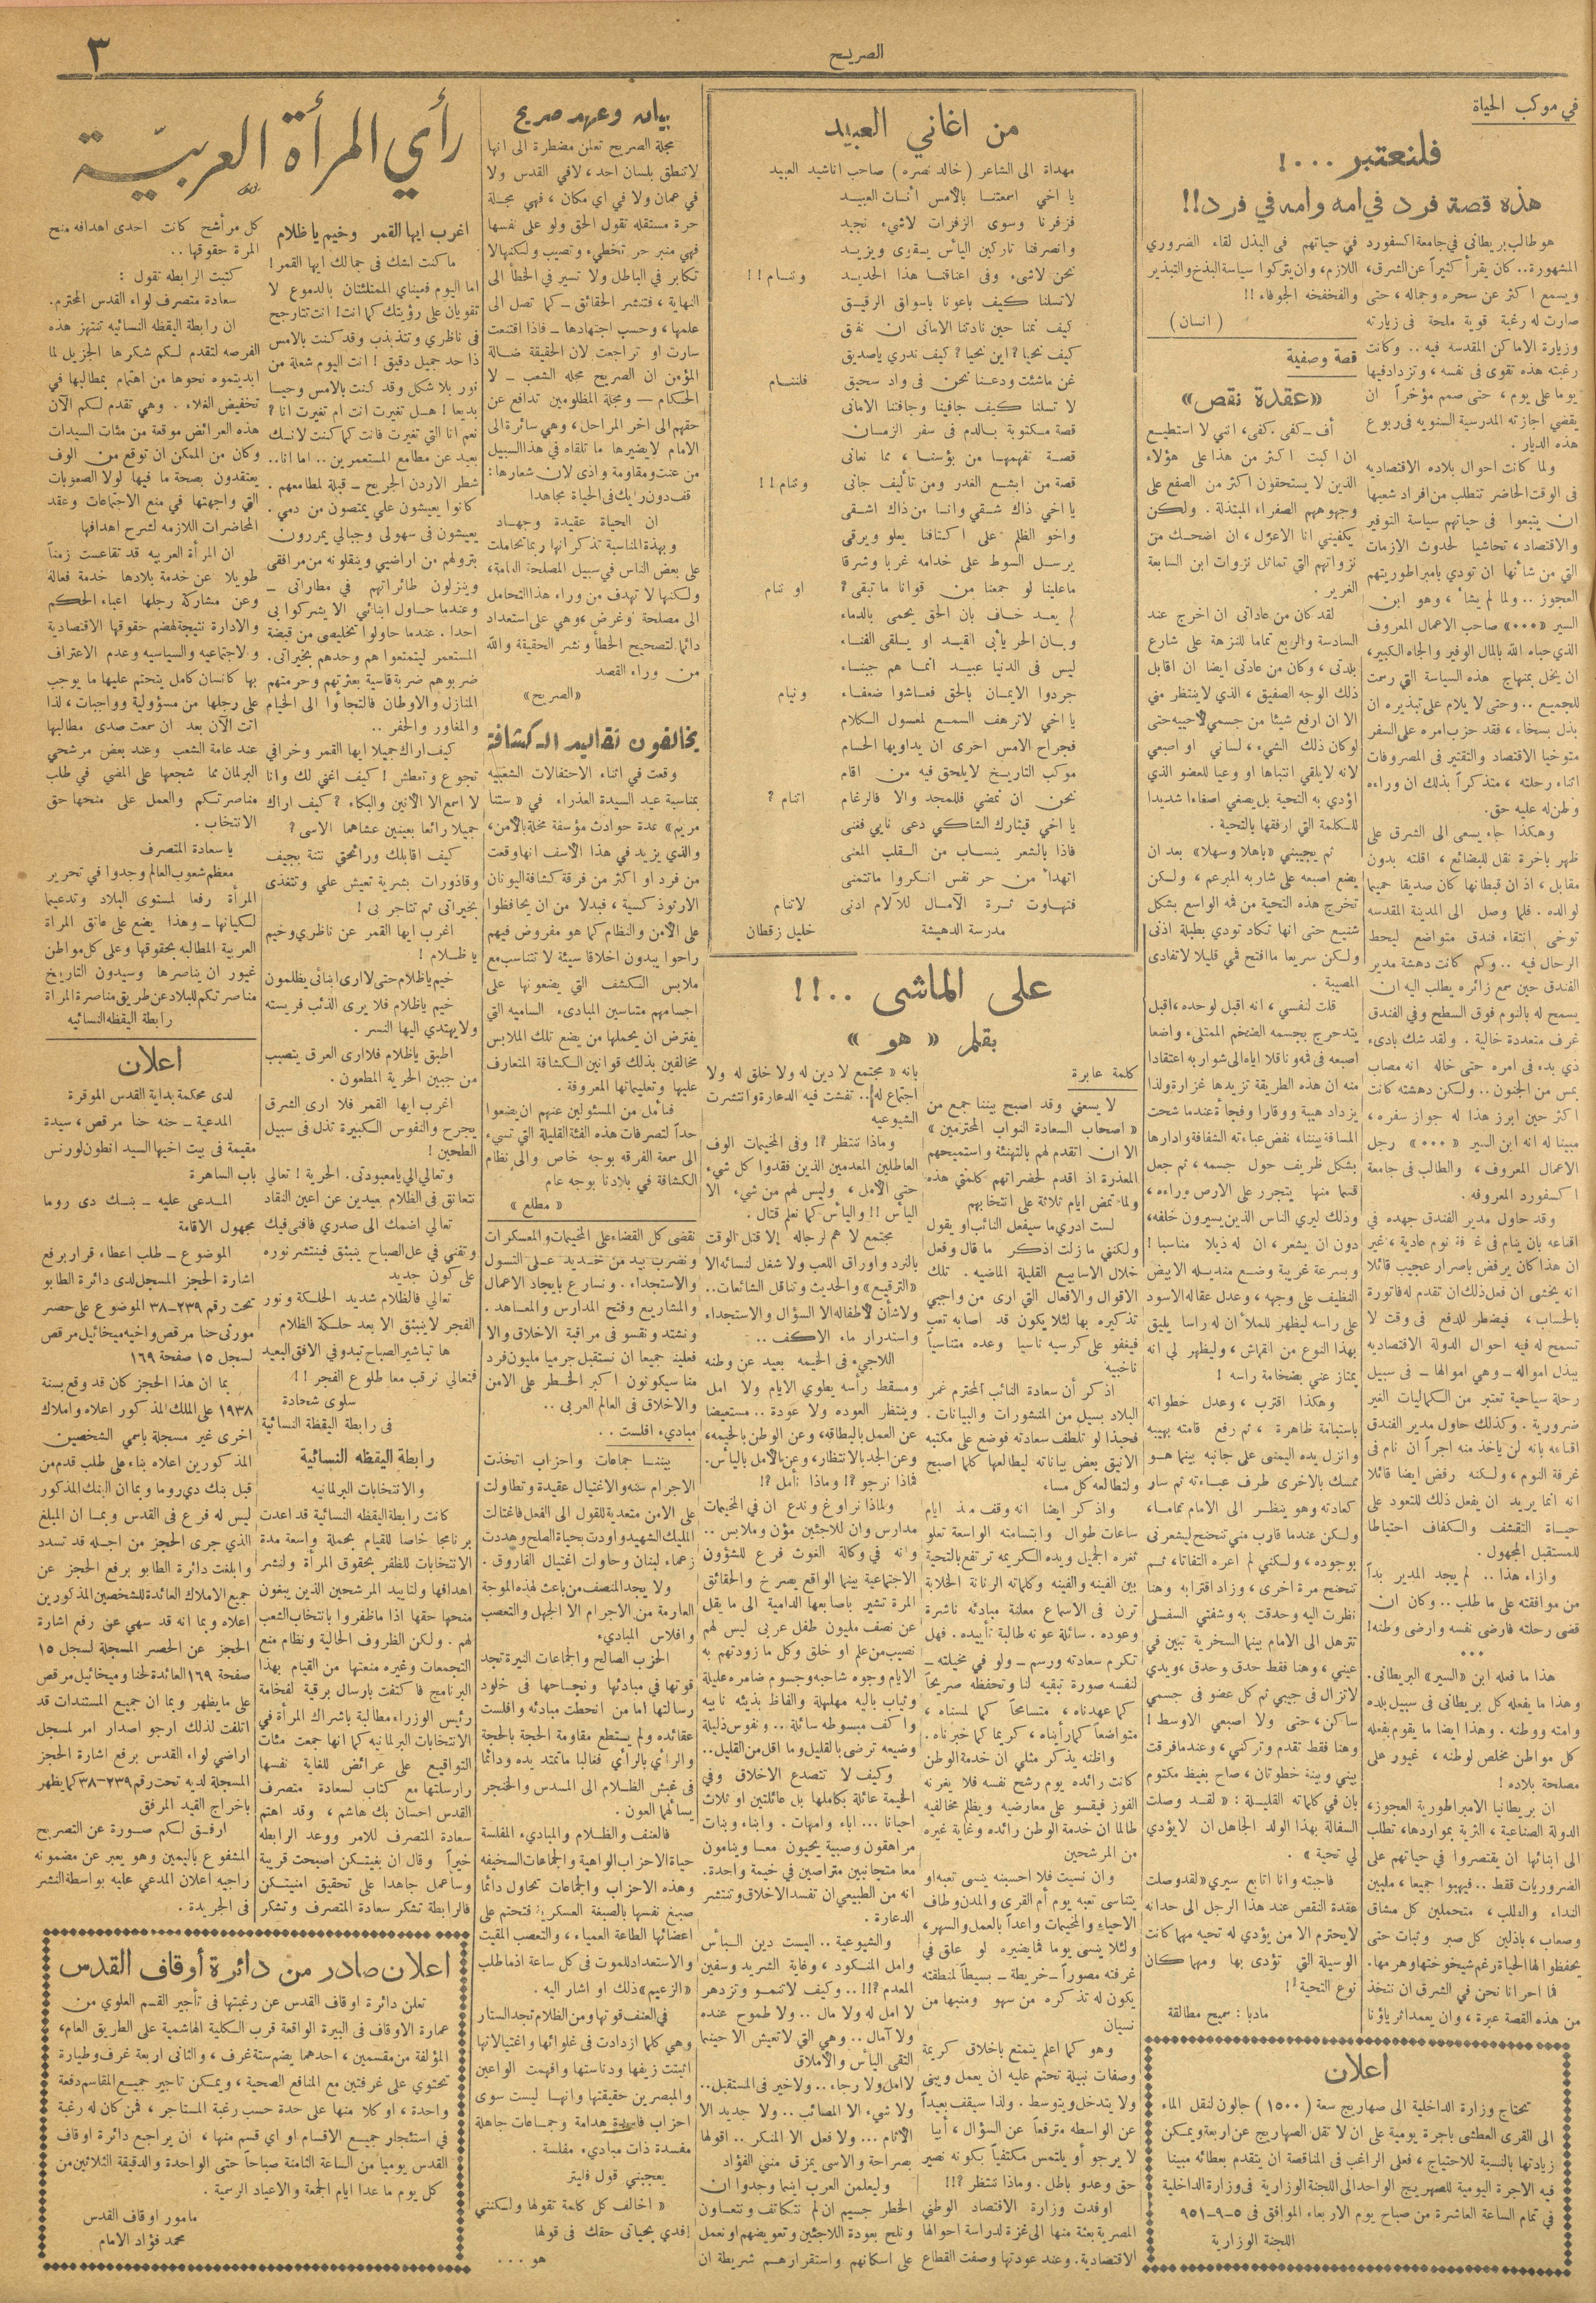 الصريح
٣
في موكب الحياة
فلنعتبر ...!
هذه قصة فرد في امه وامه في فرد!!
هو طالب بريطاني في جامعة اكسفورد
المشهورة.. كان يقرأ كثيراً عن الشرق،
ويسمع اكثر عن سحره وجماله، حتى
صارت له رغبة قوية ملحة فى زيارته
وزيارة الاماكن المقدسه فيه .. وكانت
رغبته هذه تقوى فى نفسه، وتزداد فيها
يوما على يوم، حتى صمم مؤخراً ان
يقضي اجازته المدرسية السنويه فى ربوع
هذه الديار.
ولما كانت احوال بلاده الاقتصاديه
فى الوقت الحاضر تتطلب من افراد شعبها
ان يتبعوا فى حياتهم سياسة التوفير
والاقتصاد، تحاشيا لحدوث الازمات
التي من شأنها ان تودي بامبراطوريتهم
العجوز .. ولما لم يشأ، وهو ابن
السير «٠٠٠» صاحب الاعمال المعروف
الذي حباه الله بالمال الوفير والجاه الكبير،
ان يخل بمنهاج هذه السياسة التي رسمت
للجميع .. وحتى لا يلام على تبذيره ان
بذل بسخاء، فقد حزب امره على السفر
متوخيا الاقتصاد والتقتير فى المصروفات
اثناء رحلته، متذكراً بذلك ان وراءه
وطن له عليه حق.
وهكذا جاء يسعى الى الشرق على
ظهر باخرة نقل للبضائع، اقلته بدون
مقابل، اذ ان قبطانها كان صديقا حميما
لوالده. فلما وصل الى المدينة المقدسه
توخى انتقاء فندق متواضع ليحط
الرحال فيه .. وكم كانت دهشة مدير
الفندق حين سمع زائره يطلب اليه ان
يسمح له بالنوم فوق السطح وفي الفندق
غرف متعددة خالية . ولقد شك بادىء
ذي بدء فى امره حتى خاله انه مصاب
بمس من الجنون .. ولكن دهشته كانت
اكثر حين ابرز هذا له جواز سفره،
مبينا له انه ابن السير «٠٠٠» رجل
الاعمال المعروف، والطالب فى جامعة
اكسفورد المعروفه.
وقد حاول مدير الفندق جهده في
اقناعه بان ينام فى غرفة نوم عادية، غير
ان هذا كان يرفض باصرار عجيب قائلا
انه يخشى ان فعل ذلك ان تقدم له فاتورة
بالحساب، فيضطر للدفع فى وقت لا
تسمح له فيه احوال الدولة الاقتصاديه
يبذل امواله – وهي اموالها – فى سبيل
رحلة سياحية تعتبر من الكماليات الغير
ضرورية. وكذلك حاول مدير الفندق
اقناعه بانه لن ياخذ منه اجراً ان نام فى
غرفة النوم، ولكنه رفض ايضا قائلا
انه انما يريد ان يفعل ذلك للتعود على
حياة التقشف والكفاف احتياطا
للمستقبل المجهول.
وازاء هذا .. لم يجد المدير بداً
من موافقته على ما طلب .. وكان ان
قضى رحلته فارضى نفسه وارضى وطنه!
٠٠٠
هذا ما فعله ابن «السير» البريطانى.
وهذا ما يفعله كل بريطانى فى سبيل بلده
وامته ووطنه. وهذا ايضا ما يقوم بفعله
كل مواطن مخلص لوطنه، غيور على
مصلحة بلاده!
ان بريطانيا الامبراطورية العجوز،
الدولة الصناعية، الثرية بمواردها، تطلب
الى ابنائها ان يقتصروا في حياتهم على
الضروريات فقط .. فيهبوا جميعا، ملبين
النداء والطلب، متحملين كل مشاق
وصعاب، باذلين كل صبر وثبات حتى
يحفظوا لها الحياة رغم شيخوختها وهرمها.
فما احرانا نحن في الشرق ان نتخذ
من هذه القصة عبرة، وان يعمد اثرياؤنا
في حياتهم في البذل لقاء الضروري
اللازم، وان يتركوا سياسة البذخ والتبذير
والفخفخه الجوفاء!!
(انسان)
قصة وصفية
«عقدة نقص»
أف – كفى. كفى، اننى لا استطيع
ان اكبت اكثر من هذا على هؤلاء
الذين لا يستحقون اكثر من الصفع على
وجوههم الصفراء المبتذلة . ولكن
يكفيني انا الاعزل، ان اضحك من
نزواتهم التي تماثل نزوات ابن السابعة
الغرير.
لقد كان من عاداتى ان اخرج عند
السادسة والربع تماما للنزهة على شارع
بلدتى، وكان من عادتى ايضا ان اقابل
ذلك الوجه الصفيق، الذي لا ينتظر منى
الا ان ارفع شيئا من جسمي لاحييه حتى
لو كان ذلك الشيء، لسانى او اصبعي
لانه لا يلقي انتباها او وعيا للعضو الذي
اؤدي به التحية بل يصغي اصغاءا شديدا
للكلمة التي ارفقها بالتحية.
ثم يجيبنى «باهلا وسهلا» بعد ان
يضع اصبعه على شاربه المبرعم، ولكن
تخرج هذه التحية من فمه الواسع بشكل
شنيع حتى انها تكاد تودي بطبلة اذنى
ولكن سريعا ما افتح فمي قليلا لاتفادى
المصيبة.
قلت لنفسي، انه اقبل لوحده، اقبل
يتدحرج بجسمه الضخم الممتلىء واضعا
اصبعه فى فمه وناقلا اياه الى شواربه اعتقادا
منه ان هذه الطريقة تزيدها غزارة ولذا
يزداد هيبة ووقارا وفجأة عندما شحت
المسافة بيننا، نفض عباءته الشفافة وادارها
بشكل ظريف حول جسمه، ثم جعل
قسما منها يتجرر على الارض وراءه،
وذلك ليري الناس الذين يسيرون خلفه،
دون ان يشعر، ان له ذيلا مناسبا!
وبسرعة غريبة وضع منديله الابيض
النظيف على وجهه، وعدل عقاله الاسود
على راسه ليظهر للملأ ان له راسا يليق
بهذا النوع من القماش، وليظهر لي انه
يمتاز عني بضخامة راسه!
وهكذا اقترب، وعدل خطواته
باستبانة ظاهرة، ثم رفع قامته بهيبه
وانزل يده اليمنى على جانبه بينما هو
تمسك بالاخرى طرف عباءته ثم سار
كعادته وهو ينظر الى الامام تماما،
ولكن عندما قارب مني تنحنح ليشعرنى
بوجوده، ولكنني لم اعره التفاتا، ثم
تنحنح مرة اخرى، وزاد اقترابه وهنا
نظرت اليه وحدقت به وشفتي السفلى
تترهل الى الامام بينما السخرية تبين في
عيني، وهنا فقط حدق وحدق، ويدي
لا تزال فى جيبي ثم كل عضو فى جسمي
ساكن، حتى ولا اصبعي الاوسط!
وهنا فقط تقدم وتركنى، وعندما فرقت
بينى وبينه خطوتان، صاح بغيظ مكتوم
بان في كلماته القليلة: «لقد وصلت
السفالة بهذا الولد الجاهل ان لا يؤدي
لي تحية».
فاجبته وانا اتابع سيري «لقد وصلت
عقدة النقص عند هذا الرجل الى حد انه
لا يحترم الا من يؤدي له تحيه مهما كانت
الوسيلة التي تؤدى بها ومهما كان
نوع التحية!
مادبا: سميح مطالقة
اعلان
تحتاج وزارة الداخلية الى صهاريج سعة (١٥٠٠) جالون لنقل الماء
الى القرى العطشى باجرة يومية على ان لا تقل الصهاريج عن اربعة ويمكن
زيادتها بالنسبة للاحتياج، فعلى الراغب فى المناقصة ان يتقدم بعطائه مبينا
فيه الاجرة اليومية للصهريج الواحد الى اللجنة الوزارية فى وزارة الداخلية
في تمام الساعة العاشرة من صباح يوم الاربعاء الموافق فى ٥-٩-٩٥١
اللجنة الوزارية
من اغاني العبيد
مهداة الى الشاعر (خالد نصره) صاحب اناشيد العبيد
يا اخي اسمعتنا بالأمس أنات العبيد
فزفرنا وسوى الزفرات لا شيء نجيد
وانصرفنا تاركين اليأس يقوى ويزيد
نحن لا شيء وفى اعناقنا هذا الحديد وننام!!
لا تسلنا كيف باعونا باسواق الرقيق
كيف نمنا حين نادتنا الامانى ان نفق
كيف نحيا؟ اين نحيا؟ كيف ندري يا صديق
غن ما شئت ودعنا نحن فى واد سحيق فلننام
لا تسلنا كيف جافينا وجافتنا الامانى
قصة مكتوبة بالدم فى سفر الزمان
قصة تفهمها من بؤسنا، مما نعانى
قصة من ابشع الغدر ومن تأليف جانى وننام!!
يا اخي ذاك شقي وانا من ذاك اشقى
واخو الظلم على اكتافنا يعلو ويرقى
يرسل السوط على خدامه غربا وشرقا
ما علينا لو جمعنا من قوانا ما تبقى؟ او ننام
لم يعد خاف بان الحق يحمى بالدماء
وبان الحر يأبى القيد او يلقى الفناء
ليس فى الدنيا عبيد انما هم جبناء
جردوا الايمان بالحق فعاشوا ضعفاء ونيام
يا اخي لا ترهف السمع لمعسول الكلام
فجراح الامس احرى ان يداويها الحسام
موكب التاريخ لا يلحق فيه من اقام
نحن ان نمضي فللمجد والا فالرغام اتنام؟
يا اخي قيثارك الشاكي دعى نايي فغنى
فاذا بالشعر ينساب من القلب المعنى
اتهدأ من حر نفس انكروا ما تتمنى
فتهاوت ثرة الآمال للآلام ادنى لا تنام
مدرسة الدهيشة خليل زقطان
على الماشى ..!!
بقلم «هو»
كلمة عابرة
لا يسعني وقد اصبح بيننا جمع من
«اصحاب السعادة النواب المحترمين»
الا ان اتقدم لهم بالتهنئة واستميحهم
المعذرة اذ اقدم لحضراتهم كلمتي هذه
ولما تمض ايام ثلاثة على انتخابهم
لست ادري ما سيفعل النائب او يقول
ولكنني ما زلت اذكر ما قال وفعل
خلال الاسابيع القليلة الماضيه. تلك
الاقوال والافعال التي ارى من واجبي
تذكيره بها لئلا يكون قد اصابه تعب
فيغفو على كرسيه ناسيا وعده متناسياً
ناخبيه
اذكر أن سعادة النائب المحترم غمر
البلاد بسيل من المنشورات والبيانات.
فحبذا لو تلطف سعادته فوضع على مكتبه
الانيق بعض بياناته ليطالعها كلما اصبح
ولتطالعه كل مساء
واذكر ايضا انه وقف منذ ايام
ساعات طوال وابتسامته الواسعة تعلو
ثغره الجميل ويده الكريمه ترتفع بالتحية
بين الفينه والفينه وكلماته الرنانة الخلابة
ترن فى الاسماع معلنة مبادئه ناشرة
وعوده. سائلة عونه طالبة تأييده. فهل
تكرم سعادته ورسم – ولو في مخيلته –
لنفسه صورة تبقيه لنا وتحفظه صريحاً
كما عهدناه، متسامحاً كما لمسناه،
متواضعاً كما رأيناه، كريما كما خبرناه.
واظنه يذكر مثلي ان خدمة الوطن
كانت رائده يوم رشح نفسه فلا يغرنه
الفوز فيقسو على معارضيه ويظلم مخالفيه
طالما ان خدمة الوطن رائده وغاية غيره
من المرشحين
وان نسيت فلا احسبنه ينسى تعبه او
يتناسى تعبه يوم أم القرى والمدن وطاف
الاحياء والمخيمات واعداً بالعمل والسهر،
ولئلا ينسى يوما فما يضيره لو علق في
غرفته مصوراً – خريطة – بسيطاً لمنطقته
يكون له تذكره من سهو ومنبها من
نسيان
وهو كما اعلم يتمتع باخلاق كريمة
وصفات نبيلة تحتم عليه ان يعمل ويبنى
ولا يتدخل ويتوسط. ولذا سيقف بعيداً
عن الواسطه مترفعاً عن السؤال، أبيا
لا يرجو أو يلتمس مكتفياً بكونه نصير
حق وعدو باطل. وماذا ننتظر؟!!
اوفدت وزارة الاقتصاد الوطني
المصرية بعثة منها الى غزة لدراسة احوالها
الاقتصادية. وعند عودتها وصفت القطاع
بانه «مجتمع لا دين له ولا خلق له ولا
اجتماع له».. تفشت فيه الدعارة وانتشرت
الشيوعيه
وماذا ننتظر؟! وفى المخيمات الوف
العاطلين المعدمين الذين فقدوا كل شيء
حتى الامل، وليس لهم من شيء الا
اليأس!! واليأس كما نعلم قتال.
مجتمع لا هم لرجاله إلا قتل الوقت
بالنرد واوراق اللعب ولا شغل لنسائه الا
«الترقيع» والحديث وتناقل الشائعات..
ولا شأن لاطفاله الا السؤال والاستجداء
واستدرار ماء الاكف ..
اللاجىء فى الخيمه بعيد عن وطنه
ومسقط رأسه يطوي الايام ولا امل
وينتظر العوده ولا عودة .. مستعيضا
عن العمل بالبطاقه، وعن الوطن بالخيمه،
وعن الجد بالانتظار، وعن الامل باليأس.
فماذا نرجو؟! وماذا نأمل؟!
ولماذا نراوغ وندع ان في المخيمات
مدارس وان للاجئين مؤن وملابس ..
وانه في وكالة الغوث فرع للشؤون
الاجتماعية بينما الواقع يصرخ والحقائق
المرة تشير باصابعها الدامية الى ما يقل
عن نصف مليون طفل عربى ليس لهم
نصيب من علم او خلق وكل ما زودتهم به
الايام وجوه شاحبه وجسوم ضامره عليلة
وثياب باليه مهلهلة والفاظ بذيئه نابيه
واكف مبسوطه سائلة .. ونفوس ذليلة
وضيعه ترضى بالقليل وما اقل من القليل..
وكيف لا تتصدع الاخلاق وفي
الخيمة عائلة بكاملها بل عائلتين او ثلاث
احيانا ... اباء وامهات. وابناء وبنات
مراهقون وصبية يحيون معا وينامون
معا متجانبين متراصين في خيمة واحدة.
انه من الطبيعي ان تفسد الاخلاق وتنتشر
الدعارة.
والشيوعية .. اليست دين اليأس
وامل المنكود، وغاية الشريد وسفين
المعدم؟!!.. وكيف لا تنمو وتزدهر
لا امل له ولا مال .. ولا طموح عنده
ولا آمال .. وهي التي لا تعيش الا حينما
التقى اليأس والاملاق
لا امل ولا رجاء .. ولا خير فى المستقبل..
ولا شيء الا المصائب .. ولا جديد الا
الآثام ... ولا فعل الا المنكر .. اقولها
بصراحة والاسى يمزق مننى الفؤاد
وليعلمن العرب اينما وجدوا ان
الخطر جسيم ان لم نتكاتف ونتعاون
ونلح بعودة اللاجئين وتعويضهم او نعمل
على اسكانهم واستقرارهم شريطة ان
نقضى كل القضاء على المخيمات والمعسكرات
ونضرب بيد من حديد على التسول
والاستجداء. ونسارع بايجاد الاعمال
والمشاريع وفتح المدارس والمعاهد.
ونشتد ونقسو فى مراقبة الاخلاق والا
فعلينا جميعا ان نستقبل جرميا مليون فرد
منا سيكونون اكبر الخطر على الامن
والاخلاق فى العالم العربى ..
مبادىء افلست ..
بيننا جماعات واحزاب اتخذت
الاجرام سنه والاغتيال عقيدة وتطاولت
على الامن متعدية للقول الى الفعل فاغتالت
المليك الشهيد واودت بحياة الصلح وهددت
زعماء لبنان وحاولت اغتيال الفاروق.
ولا يجد المنصف من باعث لهذه الموجة
العارمة من الاجرام الا الجهل والتعصب
وافلاس المبادىء
الحزب الصالح والجماعات النيرة تجد
قوتها في مبادئها ونجاحها فى خلود
رسالتها اما من انحطت مبادئه وافلست
عقائده ولم يستطع مقاومة الحجة بالحجة
والرأي بالرأي فغالبا ما تمتد يده ودائما
فى غبش الظلام الى المسدس والخنجر
يسالهما العون.
فالعنف والظلام والمبادىء المفلسة
حياة الاحزاب الواهية والجماعات السخيفه
وهذه الاحزاب والجماعات تحاول دائما
صبغ نفسها بالصبغة العسكرية فتحتم على
اعضائها الطاعة العمياء، والتعصب المقيت
والاستعداد للموت فى كل ساعة اذما طلب
«الزعيم» ذلك او اشار اليه.
فى العنف قوتها ومن الظلام تجد الستار
وهي كلما ازدادت في غلوائها واغتيالاتها
اثبتت زيفها ودناستها وافهمت الواعين
والمبصرين حقيقتها وانها ليست سوى
احزاب فاسدة هدامة وجماعات جاهلة
مفسدة ذات مبادىء مفلسة.
يعجبني قول فلينز
«اخالف كل كلمة تقولها ولكنني
افدي بحياتى حقك فى قولها
هو ...
بيان وعهد صريح
مجلة الصريح تعلن مضطرة الى انها
لا تنطق بلسان احد، لا في القدس ولا
في عمان ولا في اي مكان، فهي مجلة
حرة مستقلة تقول الحق ولو على نفسها
فهي منبر حر تخطيء وتصيب ولكنها لا
تكابر في الباطل ولا تسير في الخطأ الى
النهاية، فتنشر الحقائق – كما تصل الى
علمها، وحسب اجتهادها – فاذا اقتنعت
سارت او تراجعت لان الحقيقة ضالة
المؤمن ان الصريح مجله الشعب – لا
الحكام – ومجلة المظلومين تدافع عن
حقهم الى اخر المراحل، وهي سائرة الى
الامام لا يضيرها ما تلقاه في هذا السبيل
من عنت ومقاومة واذى لان شعارها:
قف دون رايك فى الحياة مجاهدا
ان الحياة عقيدة وجهاد
وبهذه المناسبة تذكر انها ربما تحاملت
على بعض الناس في سبيل المصلحة العامة،
ولكنها لا تهدف من وراء هذا التحامل
الى مصلحة وغرض، وهي على استعداد
دائما لتصحيح الخطأ ونشر الحقيقة والله
من وراء القصد
«الصريح»
يخالفون تقاليد الكشافة
وقعت في اثناء الاحتفالات الشعبيه
بمناسبة عيد السيدة العذراء في «ستنا
مريم» عدة حوادث مؤسفة مخلة بالامن،
والذي يزيد في هذا الاسف انها وقعت
من فرد او اكثر من فرقة كشافة اليونان
الارثوذكسية، فبدلا من ان يحافظوا
على الامن والنظام كما هو مفروض فيهم
راحوا يبدون اخلاقا سيئة لا تتناسب مع
ملابس الكشف التي يضعونها على
اجسامهم متناسين المبادىء الساميه التي
يفترض ان يحملها من يضع تلك الملابس
مخالفين بذلك قوانين الكشافة المتعارف
عليها وتعليماتها المعروفة.
فنأمل من المسئولين عنهم ان يضعوا
حداً لتصرفات هذه الفئة القليلة التي تسيء
الى سمعة الفرقه بوجه خاص والى نظام
الكشافة في بلادنا بوجه عام
«مطلع»
رأي المرأة العربيّة
اغرب ايها القمر وخيم يا ظلام
ما كنت اشك فى جمالك ايها القمر!
اما اليوم فعيناي الممتلئتان بالدموع لا
تقويان على رؤيتك كما انت! انت تتارجح
فى ناظري وتتذبذب وقد كنت بالامس
ذا حد جميل دقيق! انت اليوم شعلة من
نور بلا شكل وقد كنت بالامس وحيا
بديعا! هل تغيرت انت ام تغيرت انا؟
نعم انا التي تغيرت فانت كما كنت لانك
بعيد عن مطامع المستعمرين.. اما انا..
شطر الاردن الجريح – قبلة لمطامعهم.
كانوا يعيشون علي يمتصون من دمي.
يعيشون فى سهولى وجبالي يمررون
بترولهم من اراضيي وينقلونه من مرافقى
وينزلون طائراتهم في مطاراتى –
وعندما حاول ابنائي الا يشركوا بى
احدا. عندما حاولوا تخليصى من قبضة
المستعمر ليتمتعوا هم وحدهم بخيراتى.
ضربوهم ضربة قاسية بعثرتهم وحرمتهم
المنازل والاوطان فالتجأوا الى الخيام
والمغاور والحفر ..
كيف اراك جميلا ايها القمر وخرافي
تجوع وتعطش! كيف اغني لك وانا
لا اسمع الا الانين والبكاء؟ كيف اراك
جميلا رائعا بعينين عشاهما الاسى؟
كيف اقابلك ورائحتي نتنة بجيف
وقاذورات بشرية تعيش علي وتتغذى
بخيراتى ثم تتاجر بى!
اغرب ايها القمر عن ناظري وخيم
يا ظلام!
خيم يا ظلام حتى لا ارى ابنائى يظلمون
خيم يا ظلام فلا يرى الذئب فريسته
ولا يهتدي اليها النسر.
اطبق يا ظلام فلا ارى العرق يتصبب
من جبين الحرية المطعون.
اغرب ايها القمر فلا ارى الشرق
يجرح والنفوس الكبيرة تذل فى سبيل
الطحين!
وتعالي الي يا معبودتى. الحرية! تعالي
نتعانق فى الظلام بعيدين عن اعين النقاد
تعالي اضمك الى صدري فافنى فيك
وتفني في عل الصباح ينبثق فينتشر نوره
على كون جديد
تعالي فالظلام شديد الحلكة ونور
الفجر لا ينبثق الا بعد حلكة الظلام
ها تباشير الصباح تبدو في الافق البعيد
فتعالي نرقب معا طلوع الفجر!!
سلوى شحادة
فى رابطة اليقظة النسائية
رابطة اليقظه النسائية
والانتخابات البرلمانيه
كانت رابطة اليقظه النسائية قد اعدت
برنامجا خاصا للقيام بحملة واسعة مدة
الانتخابات للظفر بحقوق المرأة ولنشر
اهدافها ولتاييد المرشحين الذين يبغون
منحها حقها اذا ما ظفروا بانتخاب الشعب
لهم. ولكن الظروف الحالية ونظام منع
التجمعات وغيره منعتها من القيام بهذا
البرنامج فاكتفت بارسال برقية لفخامة
رئيس الوزراء مطالبة باشراك المرأة في
الانتخابات البرلمانيه كما انها جمعت مئات
التواقيع على عرائض للغاية نفسها
وارسلتها مع كتاب لسعادة متصرف
القدس احسان بك هاشم، وقد اهتم
سعادة المتصرف للامر ووعد الرابطه
خيراً وقال ان بغيتكن اصبحت قريبة
وساعمل جاهدا على تحقيق امنيتكن
فالرابطة تشكر سعادة المتصرف وتشكر
كل مرأشح كانت احدى اهدافه منح
المرة حقوقها ..
كتبت الرابطه تقول:
سعادة متصرف لواء القدس المحترم.
ان رابطة اليقظه النسائيه تنتهز هذه
الفرصه لتقدم لكم شكرها الجزيل لما
ابديتموه نحوها من اهتمام بمطالبها في
تخفيض الغلاء. وهي تقدم لكم الآن
هذه العرائض موقعة من مئات السيدات
وكان من الممكن ان توقع من الوف
يعتقدون بصحة ما فيها لولا الصعوبات
التي واجهتها في منع الاجتماعات وعقد
المحاضرات اللازمه لشرح اهدافها
ان المرأة العربيه قد تقاعست زمناً
طويلا عن خدمة بلادها خدمة فعالة
وعن مشاركة رجلها اعباء الحكم
والادارة نتيجة لهضم حقوقها الاقتصادية
والاجتماعيه والسياسيه وعدم الاعتراف
بها كانسان كامل يتحتم عليها ما يوجب
على رجلها من مسؤولية وواجبات، لذا
اتت الآن بعد ان سمعت صدى مطالبها
عند عامة الشعب وعند بعض مرشحي
البرلمان مما شجعها على المضي في طلب
مناصرتكم والعمل على منحها حق
الانتخاب.
يا سعادة المتصرف
معظم شعوب العالم وجدوا في تحرير
المرأة رفعا لمستوى البلاد وتدعيما
لكيانها – وهذا يضع على عاتق المرأة
العربية المطالبه بحقوقها وعلى كل مواطن
غيور ان يناصرها وسيدون التاريخ
مناصرتكم للبلاد عن طريق مناصرة المرأة
رابطة اليقظه النسائيه
اعلان
لدى محكمة بداية القدس الموقرة
المدعية – حنه حنا مرقص، سيدة
مقيمة فى بيت اخيها السيد انطون لورنس
باب الساهرة
المدعى عليه – بنك دى روما
مجهول الاقامة
الموضوع – طلب اعطاء قرار برفع
اشارة الحجز المسجل لدى دائرة الطابو
تحت رقم ٢٣٩–٣٨ الموضوع على حصر
مورثى حنا مرقص واخيه ميخائيل مرقص
لسجل ١٥ صفحة ١٦٩
بما ان هذا الحجز كان قد وقع بسنة
١٩٣٨ على الملك المذكور اعلاه واملاك
اخرى غير مسجلة باسمي الشخصين
المذكورين اعلاه بناء على طلب قدم من
قبل بنك دي روما وبما ان البنك المذكور
ليس له فرع فى القدس وبما ان المبلغ
الذي جرى الحجز من اجله قد تسدد
وابلغت دائرة الطابو برفع الحجز عن
جميع الاملاك العائدة للشخصين المذكورين
اعلاه وبما انه قد سهي عن رفع اشارة
الحجز عن الحصر المسجلة لسجل ١٥
صفحة ١٦٩ العائدة لحنا وميخائيل مرقص
على ما يظهر وبما ان جميع المستندات قد
اتلفت لذلك ارجو اصدار امر لمسجل
اراضي لواء القدس برفع اشارة الحجز
المسجلة لديه تحت رقم ٢٣٩–٣٨ كما يظهر
باخراج القيد المرفق
ارفق لكم صورة عن التصريح
المشفوع باليمين وهو يعبر عن مضمونه
راجيه اعلان المدعي عليه بواسطة النشر
فى الجريدة.
اعلان صادر من دائرة أوقاف القدس
تعلن دائرة اوقاف القدس عن رغبتها فى تأجير القسم العلوي من
عمارة الاوقاف فى البيرة الواقعة قرب الكلية الهاشمية على الطريق العام،
المؤلفة من مقسمين، احدهما يضم ستة غرف، والثانى اربعة غرف وطيارة
تحتوي على غرفتين مع المنافع الصحية، ويمكن تاجير جميع المقاسم دفعة
واحدة، او كلا منها على حدة حسب رغبة المستاجر، فمن كان له رغبة
في استئجار جميع الاقسام او اي قسم منها، أن يراجع دائرة اوقاف
القدس يوميا من الساعة الثامنة صباحاً حتى الواحدة والدقيقة الثلاثين من
كل يوم ما عدا ايام الجمعة والاعياد الرسمية.
مامور اوقاف القدس
محمد فؤاد الامام